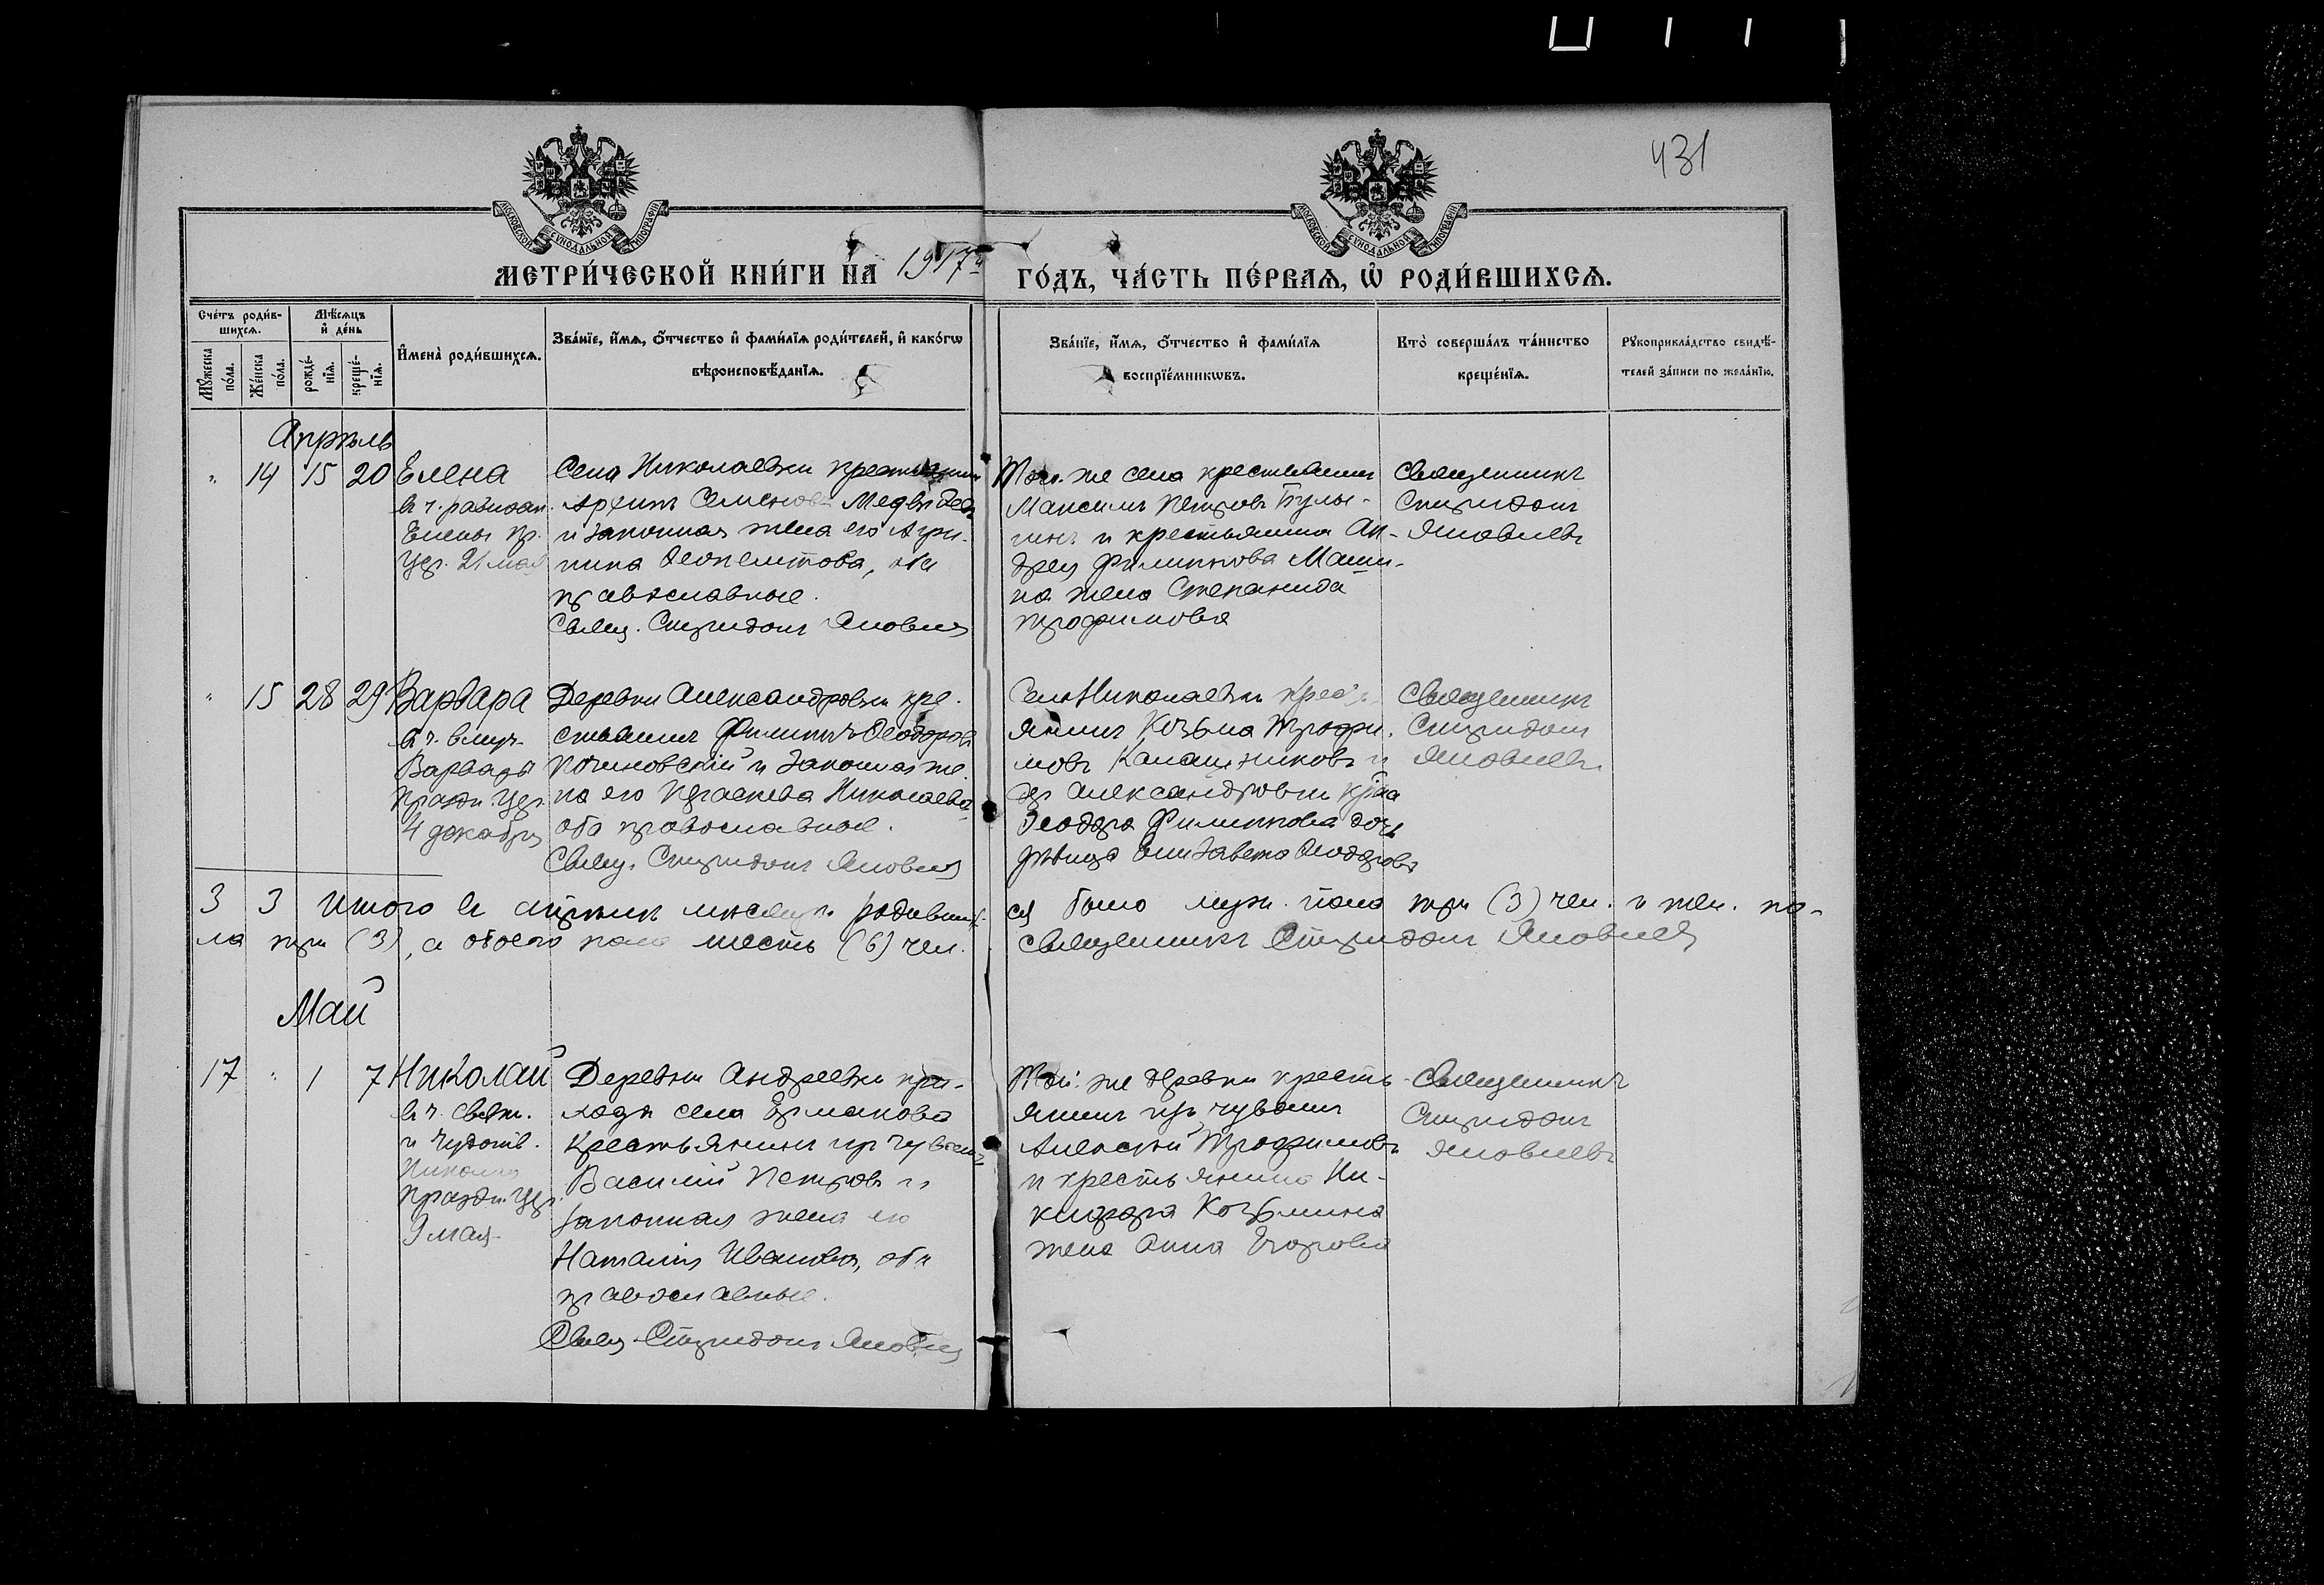 431
МОСКОВСКОЙ СУНОДАЛЬНОЙ ТИПОГРАФІИ
МОСКОВСКОЙ СУНОДАЛЬНОЙ ТИПОГРАФІИ
МЕТРИ́ЧЕСКОЙ КНИ́ГИ НА 1917й ГО́ДЪ, ЧА́СТЬ ПЕ́РВАѦ, Ѡ҆ РОДИ́ВШИХСѦ.
Сче́тъ роди́в-
шихсѧ.
Мꙋ́жеска
по́ла.
Же́нска
по́ла.
Мѣ́сѧцъ
и҆ де́нь
рожде́-
нїѧ.
креще́-
нїѧ.
И҆мена̀ роди́вшихсѧ.
Зва́нїе, и҆́мѧ, ѻ҆́тчество и҆ фами́лїѧ роди́телей, и҆ како́гѡ
вѣроисповѣ́данїѧ.
Зва́нїе, и҆́мѧ, ѻ҆́тчество и҆ фами́лїѧ
воспрїе́мникѡвъ.
Кто̀ соверша́лъ та́инство
креще́нїѧ.
Рꙋкоприкла́дство свидѣ́-
телей за́писи по жела́нїю.
Апрѣль
" 14 15 20 Елена
въ ч. равноап.
Елены пр.
цер. 21 мая
Села Николаевки крестьянинъ
Архипъ Семеновъ Медвѣдевъ
и законная жена его Агри-
пина Феопемптова, оба
православные.
Свящ. Спиридонъ Яковлев
Того же села крестьянинъ
Максимъ Петровъ Булы-
гинъ и крестьянина Ан-
дрея Филиппова Маши-
на жена Степанида
Трофимова
Священникъ
Спиридонъ
Яковлевъ
" 15 28 29 Варвара
въ ч. влмуч.
Варвары
праздн. цер.
4 декабря
Деревни Александровки кре-
стьянинъ Филиппъ Ѳеодоровъ
и законная же-
на его Параскева Николаева
оба православные.
Свящ. Спиридонъ Яковлев
Села Николаевки крест-
янинъ Козьма Трофи-
мовъ Калашниковъ и
дер Александровки кр-на
Ѳеодора Филиппова дочь
дѣвица Елизавета Ѳеодорова
Священникъ
Спиридонъ
Яковлевъ
3 3 Итого въ апрѣлѣ мѣсяцѣ родивших-
ся было муж. пола три (3) чел. и жен. по-
ла три (3), а обоего пола шесть (6) чел.
Священникъ Спиридонъ Яковлев
Май
17 " 1 7 Николай
въ ч. свят.
и чудотв.
Николая
праздн. цер.
9 мая
Деревни Андреевки при-
хода села Ермакова
крестьянинъ изъ чувашъ
Василій Петровъ и
законная жена его
Наталія Иванова, оба
православные.
Свящ Спиридонъ Яковлев
Той же деревни кресть-
янинъ изъ чувашъ
Алексѣй Трофимовъ
и крестьянина Ни-
кифора Козьмина
жена Анна Егорова
Священникъ
Спиридонъ
Яковлевъ